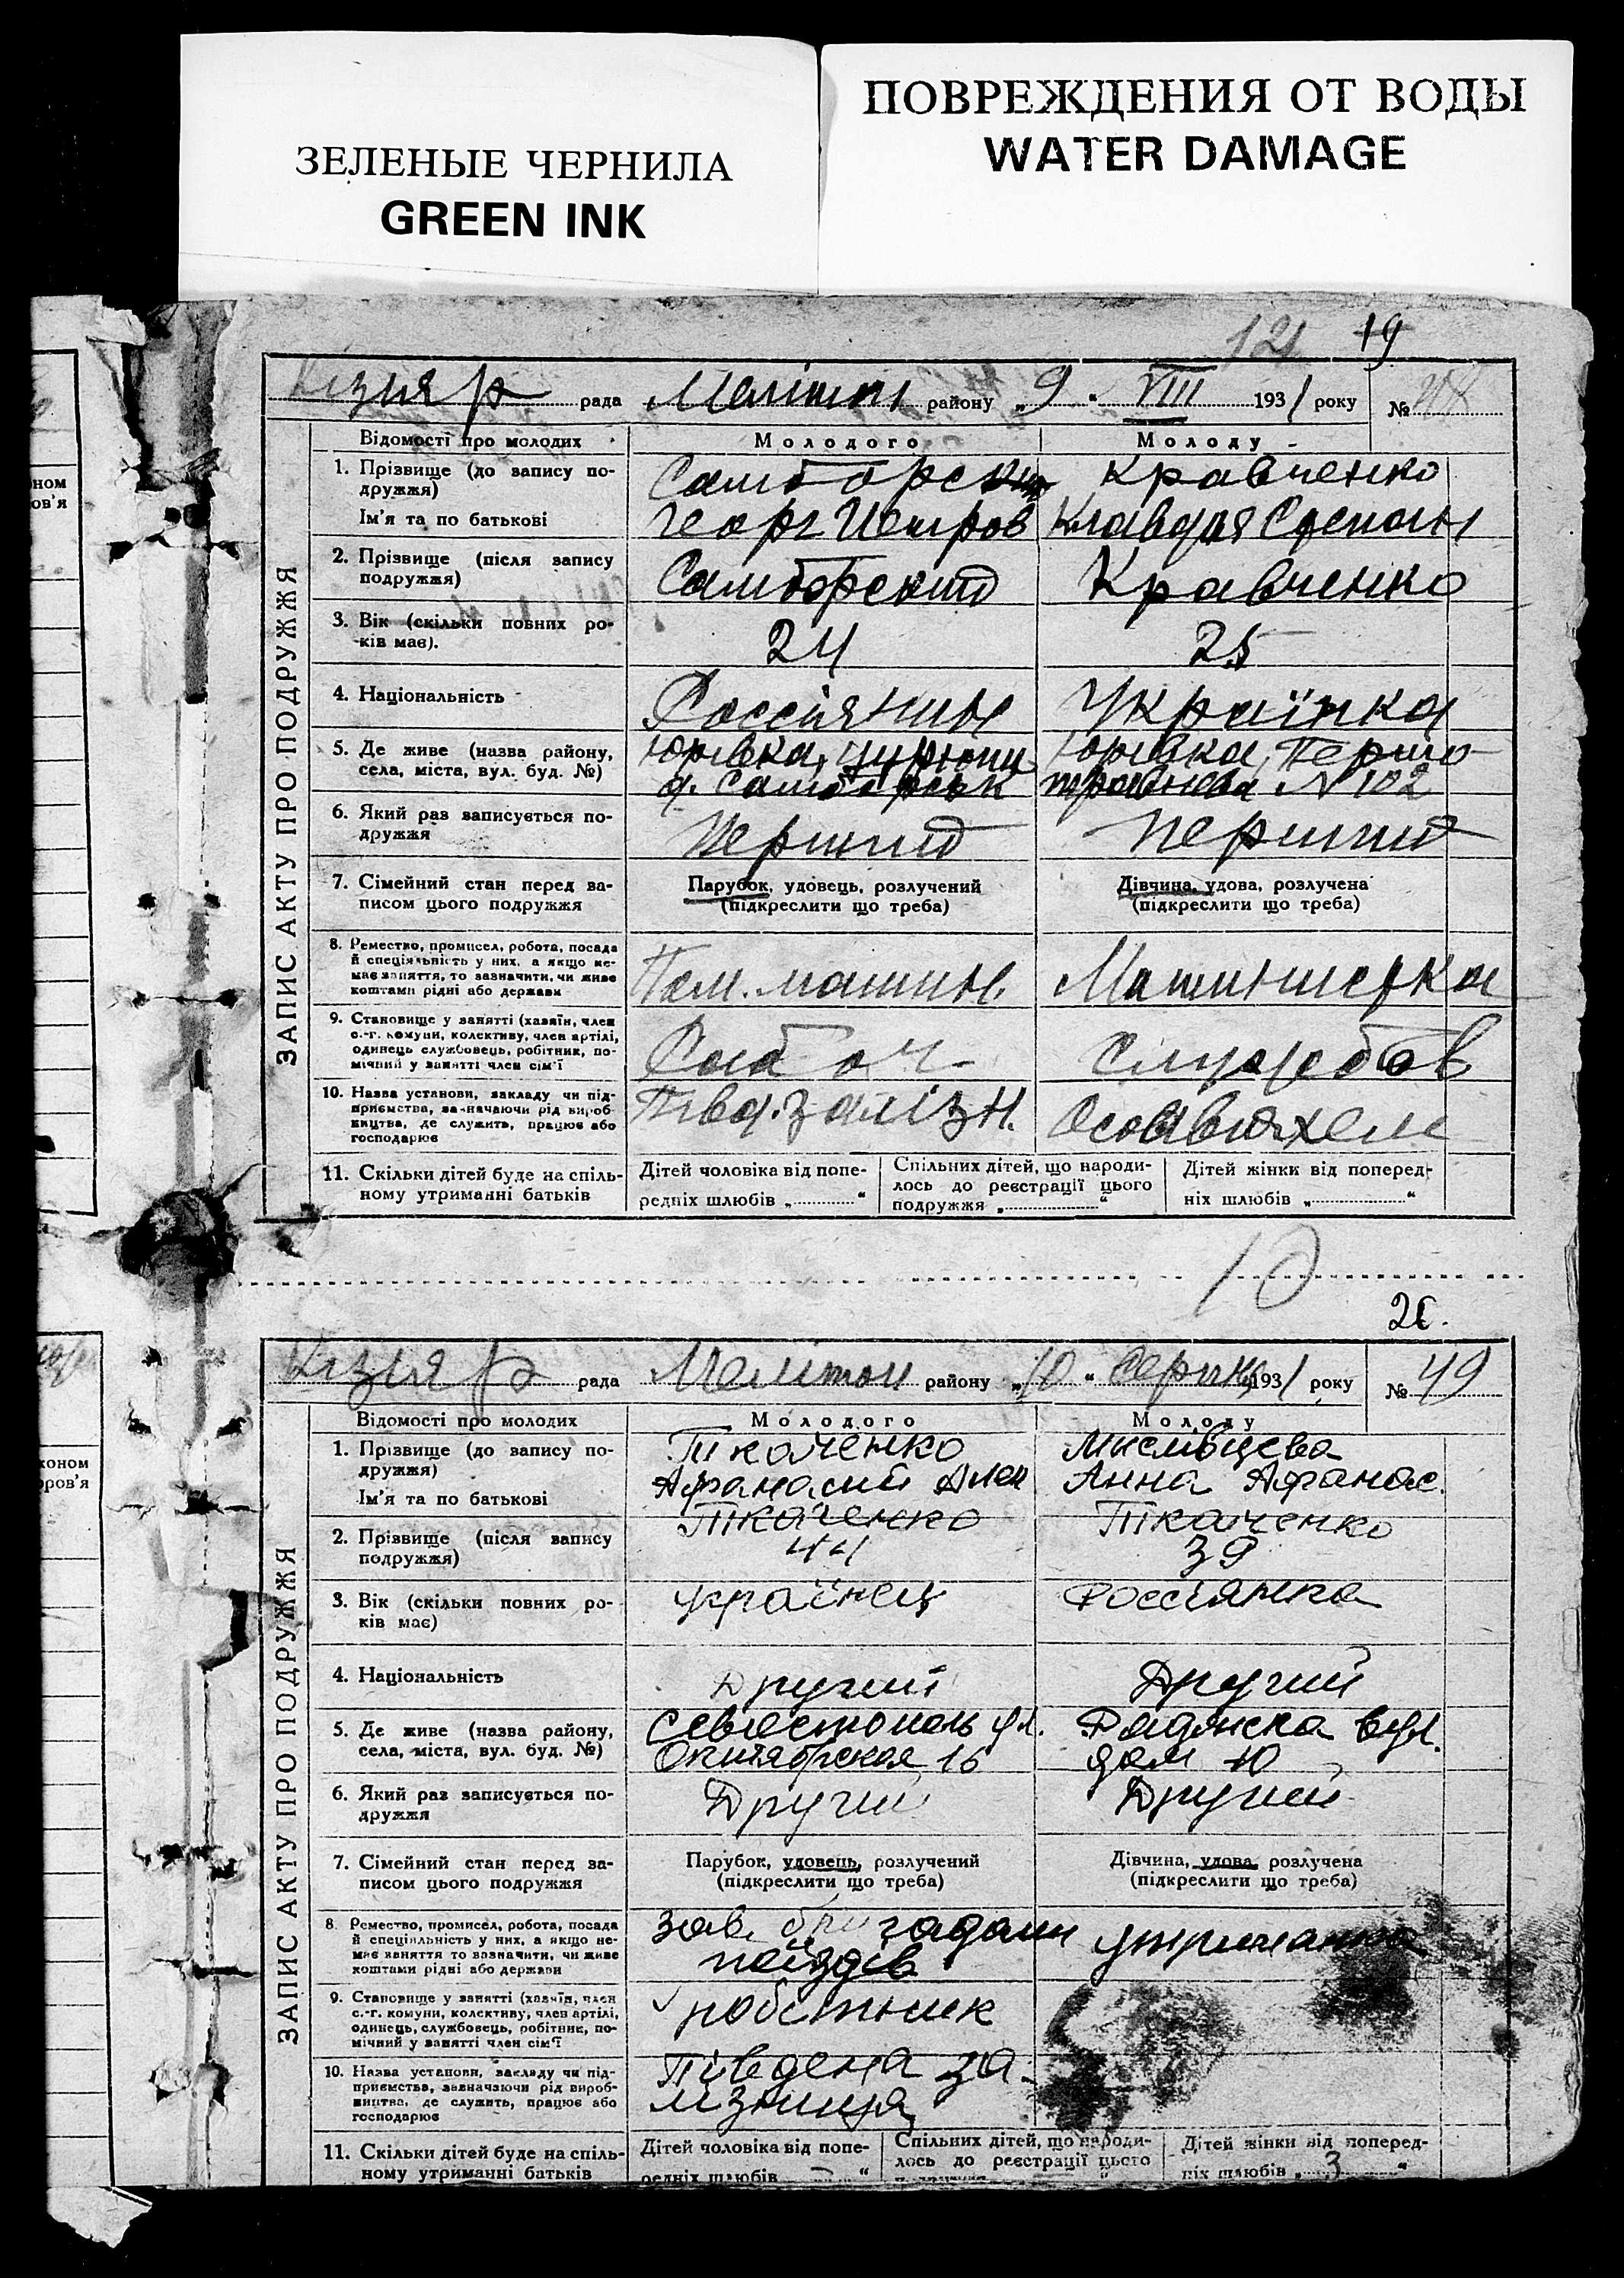 ЗЕЛЕНЫЕ ЧЕРНИЛА
GREEN INK
ПОВРЕЖДЕНИЯ ОТ ВОДЫ
WATER DAMAGE
121 19
Кізияр рада Меліт району „9" VIII 1931 року № 48
ЗАПИС АКТУ ПРО ПОДРУЖЖЯ
Відомості про молодих Молодого Молоду
1. Прізвище (до запису по-
дружжя) Самборский Кравченко
Ім'я та по батькові Георг Петров Клавдия Степан
2. Прізвище (після запису
подружжя) Самборский Кравченко
3. Вік (скільки повних ро-
ків має). 24 25
4. Національність Россіянин Українка
5. Де живе (назва району,
села, міста, вул. буд. №)
Юрівка, Цурюпи Юрівка, Першо-
д. Самборськ травнева № 102
6. Який раз записується по-
дружжя Перший Перший
7. Сімейний стан перед за-
писом цього подружжя
Парубок, удовець, розлучений
(підкреслити що треба)
Дівчина, удова, розлучена
(підкреслити що треба)
8. Ремество, промисел, робота, посада
й спеціяльність у них, а якщо не-
має заняття, то зазначити, чи живе
коштами рідні або держави
Пом. машин. Машинистка
9. Становище у занятті (хазяїн, член
с.-г. комуни, колективу, член артілі,
одинець службовець, робітник, по-
мічний у занятті член сім'ї
Робоч Службов
10. Назва установи, закладу чи під-
приємства, зазначаючи рід вироб-
ництва, де служить, працює або
господарює
Півд. залізн. Осоавиахем
11. Скільки дітей буде на спіль-
ному утриманні батьків
Дітей чоловіка від попе-
редніх шлюбів „ "
Спільних дітей, що народи-
лось до реєстрації цього
подружжя „ "
Дітей жінки від поперед-
ніх шлюбів „ "
10
20.
Кізияр рада Меліт району „10" Серпня 1931 року № 49
ЗАПИС АКТУ ПРО ПОДРУЖЖЯ
Відомості про молодих Молодого Молоду
1. Прізвище (до запису по-
дружжя) Ткаченко Мислівцева
Ім'я та по батькові Афанасий Алек Анна Афанас.
2. Прізвище (після запису
подружжя) Ткаченко Ткаченко
44 39
3. Вік (скільки повних ро-
ків має) українець Россіянка
4. Національність Другий Другий
5. Де живе (назва району,
села, міста, вул. буд. №)
Севастополь ул. Радянска вул.
Октябрская 16 дом 10
6. Який раз записується по-
дружжя Другий Другий
7. Сімейний стан перед за-
писом цього подружжя
Парубок, удовець, розлучений
(підкреслити що треба)
Дівчина, удова, розлучена
(підкреслити що треба)
8. Ремество, промисел, робота, посада
й спеціяльність у них, а якщо не-
має заняття то зазначити, чи живе
коштами рідні або держави
Зав. бригадами утриманка
поїздів
9. Становище у занятті (хазяїн, член
с.-г. комуни, колективу, член артілі,
одинець, службовець, робітник, по-
мічний у занятті член сім'ї
робітник
10. Назва установи, закладу чи під-
приємства, зазначаючи рід вироб-
ництва, де служить, працює або
господарює
Південа за-
лізниця
11. Скільки дітей буде на спіль-
ному утриманні батьків
Дітей чоловіка від попе-
редніх шлюбів „ "
Спільних дітей, що народи-
лось до реєстрації цього
Дітей жінки від поперед-
ніх шлюбів „ 3 "
ном
ов'я
коном
ров'я